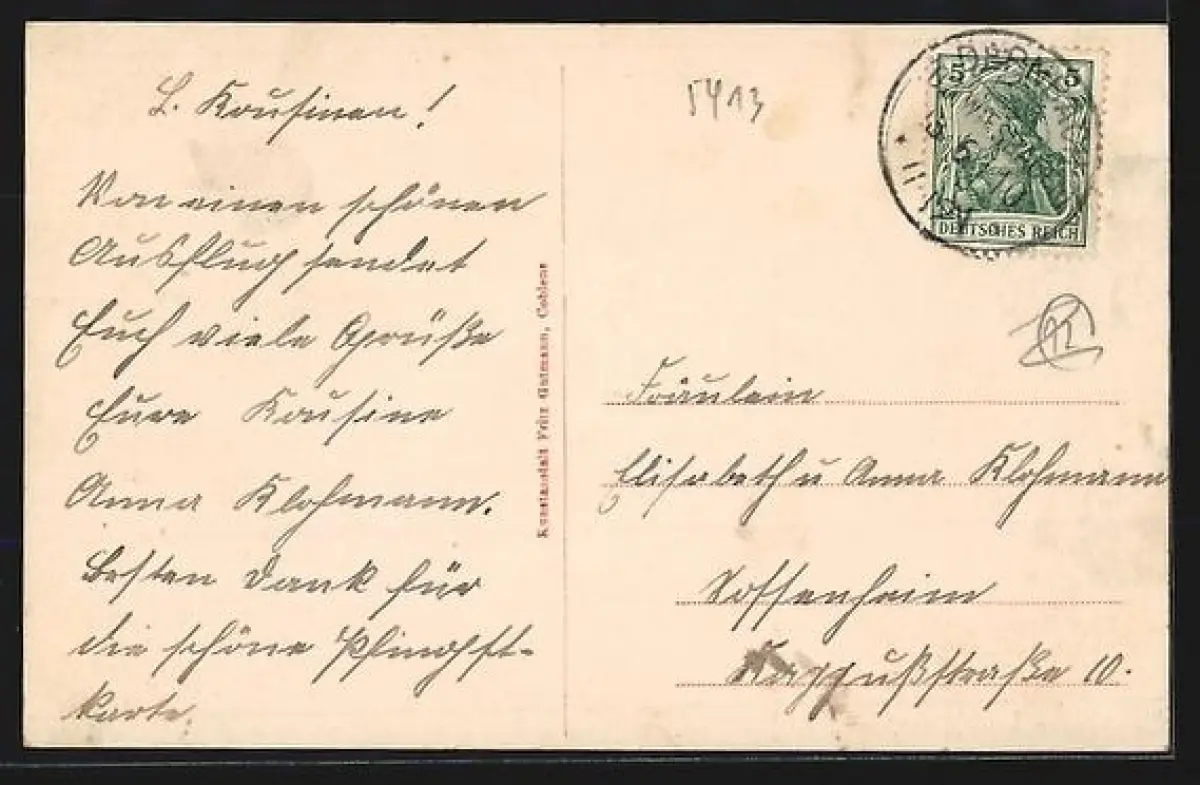 L. Kousinen!
Von einen schönen
Ausflug sendet
Euch viele Grüße
Eure Kousine
Anna Klohmann.
Besten Dank für
die schöne Pfingst-
karte.
Kunstanstalt Fritz Gutmann, Coblenz
5413
5 5
DEUTSCHES REICH
Fräulein
Elisabeth u Anna Klohmann
Sossenheim
10.